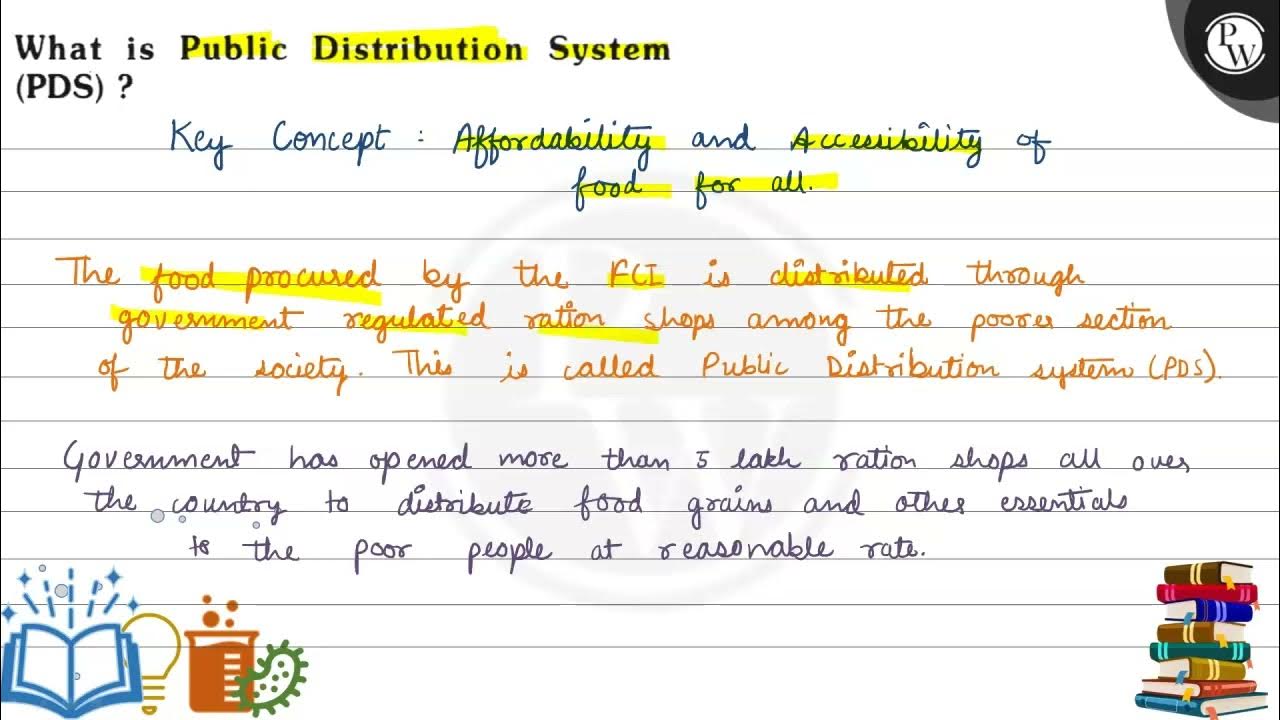 What is Public Distribution System
(PDS) ?
PW
Key Concept : Affordability and Accessibility of
food for all.
The food procured by the FCI is distributed through
government regulated ration shops among the poorer section
of the society. This is called Public Distribution system (PDS).
Government has opened more than 5 lakh ration shops all over
the country to distribute food grains and other essentials
to the poor people at reasonable rate.